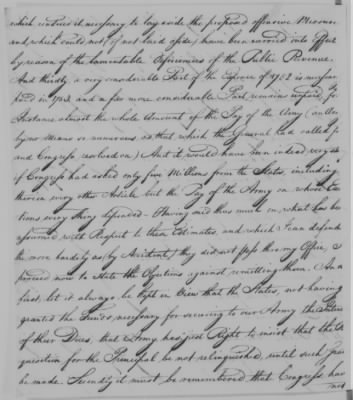 which rendered it necessary to lay aside the proposed offensive Measures
and, which could not (if not laid aside) have been carried into Effect
by reason of the lamentable Deficiencies of the Public Revenue.
And thirdly a very considerable Part of the Expence of 1782 is
in 1783 and a far more considerable Part remains unpaid, for
Instance almost the whole Amount of the Pay of the Army (an Army
by no Means so numerous as that which the General had called for
and Congress resolved on) And it would have been indeed very
if Congress had asked only five Millions from the States, including
therein every other Article but the Pay of the Army on whose
every thing depended - Having said thus much on what has been
assumed with Respect to these Estimates, and which I can defend
the more hardily as (by Accident) they did not pass thro my Office, I
proceed now to state the Objections against remitting them. And
first, let it always be kept in View that the States, not having
granted the Funds necessary for securing to our Army the
of their Dues, that Army has just Right to insist that the
for the Principal be not relinquished, until such
be made. Secondly it must be remembered that Congress have
not